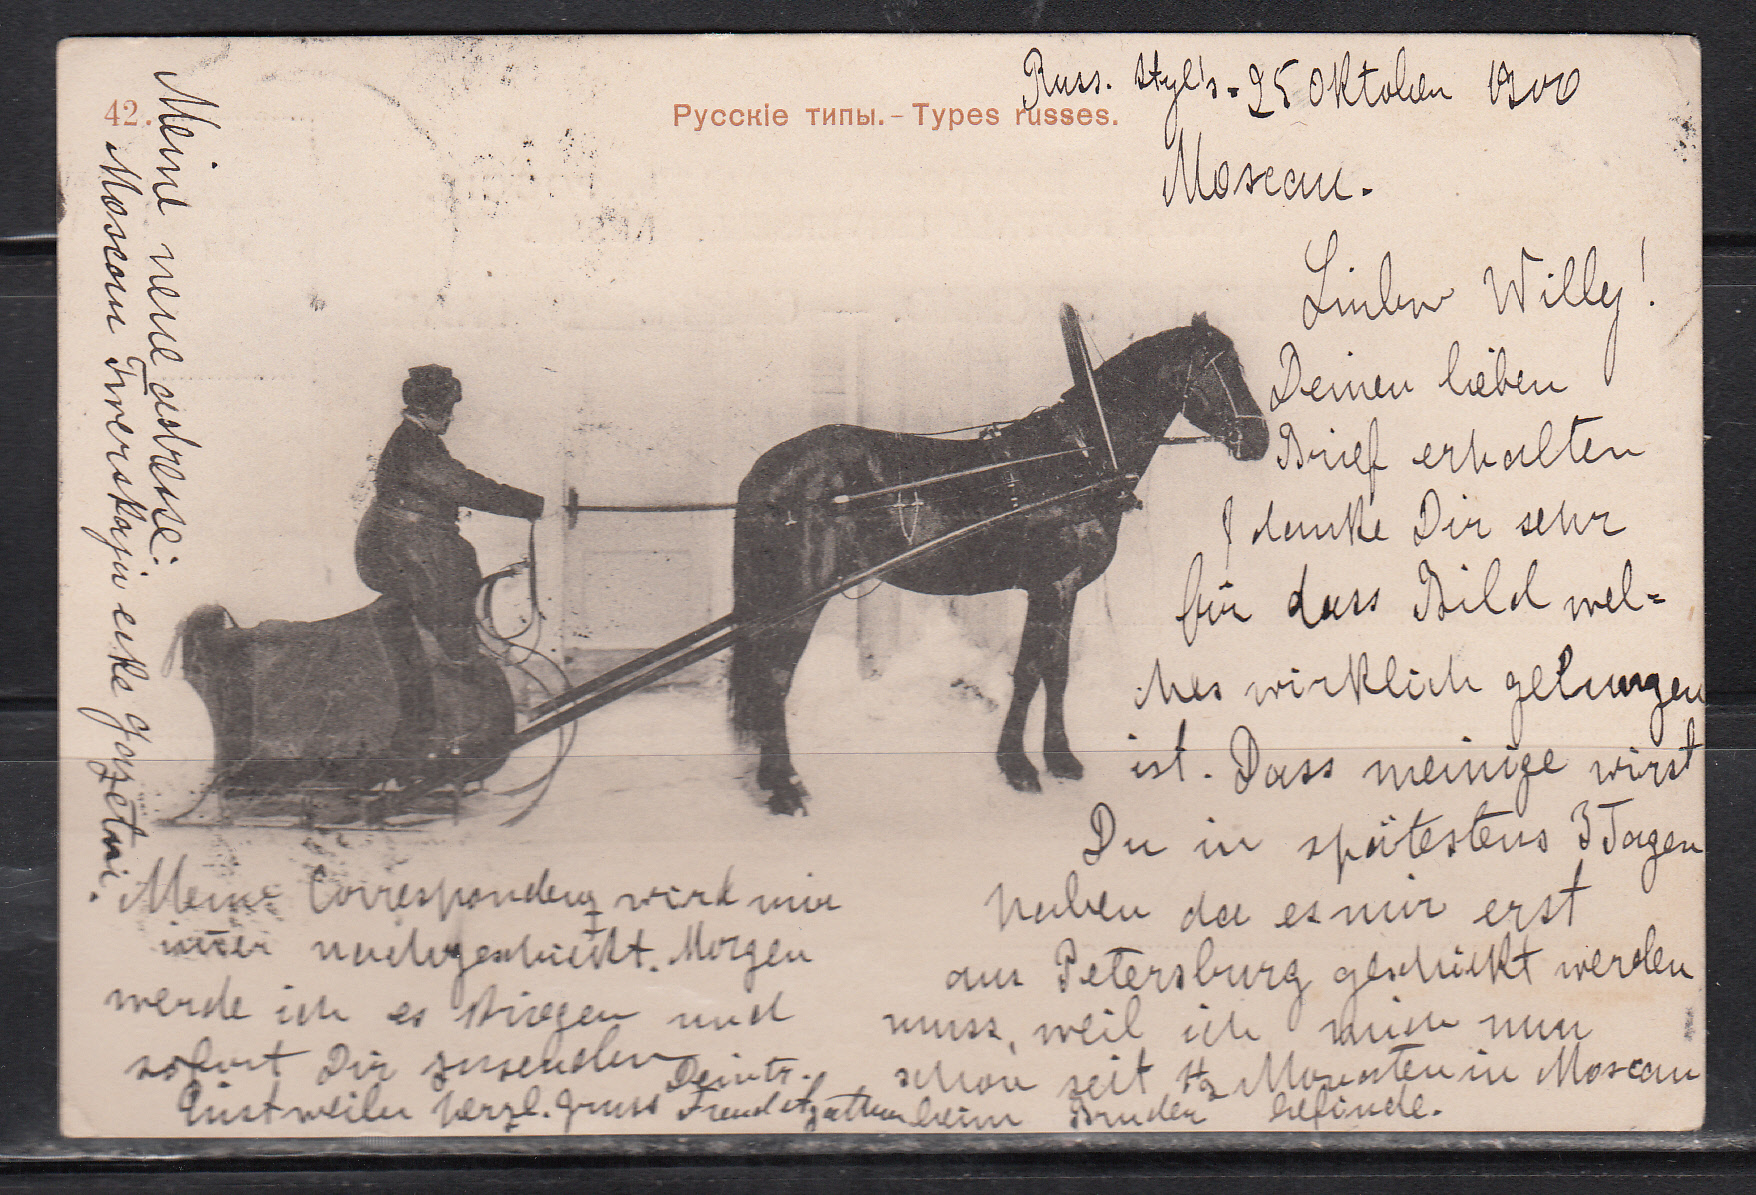 42.
Русскіе типы. - Types russes.
Russ. Styl's. 25 Oktober 1900
Moscau.
Lieber Willy!
Deinen lieben
Brief erhalten
danke Dir sehr
für dass Bild wel=
ches wirklich gelungen
ist. Dass meinige wirst
Du in spätestens 3 Tagen
haben da es mir erst
aus Petersburg geschickt werden
muss, weil ich mich nun
schon seit 1/2 Monaten in Moscau
beim Bruder befinde.
Meine Correspondenz wird mir
immer nachgeschickt. Morgen
werde ich es kriegen und
sofort Dir zusenden
Einstweilen herzl. Gruss Dein tr.
Freund
Meine neue adresse:
Moscau Twerskaja ecke Gazetni.